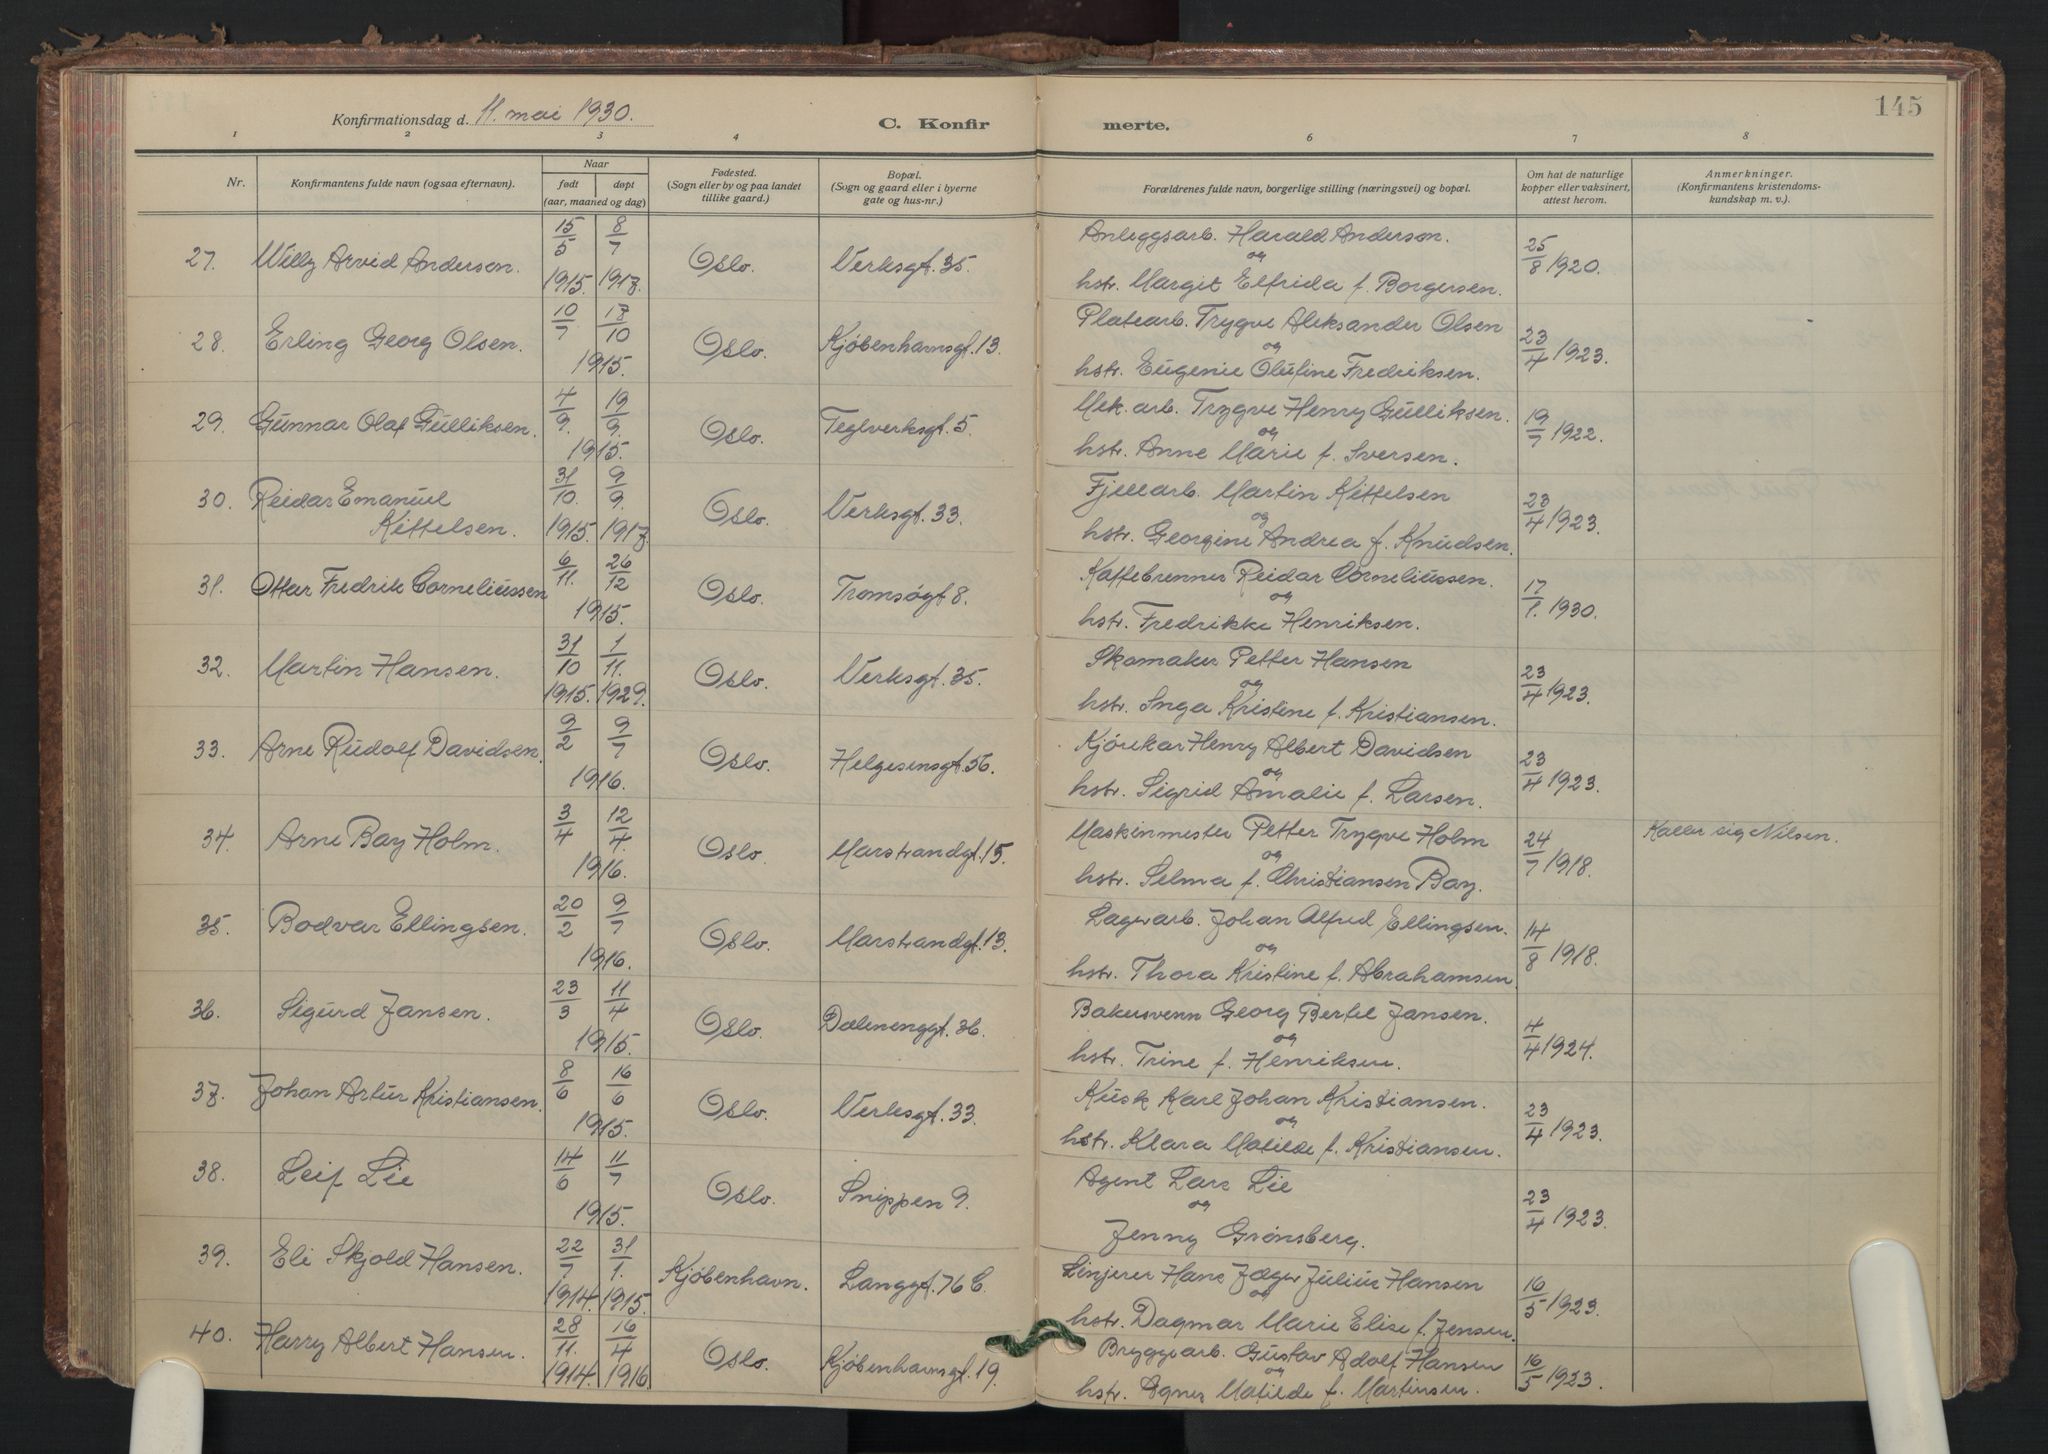 145
Konfirmationsdag d. 11. mai 1930.
C. Konfir
merte.
1 2 3 4 5 6 7 8
Nr.
Konfirmantens fulde navn (ogsaa efternavn).
Naar
født døpt
(aar, maaned og dag)
Fødested.
(Sogn eller by og paa landet
tillike gaard.)
Bopæl.
(Sogn og gaard eller i byerne
gate og hus-nr.)
Forældrenes fulde navn, borgerlige stilling (næringsvei) og bopæl.
Om hat de naturlige
kopper eller vaksinert,
attest herom.
Anmerkninger.
(Konfirmantens kristendoms-
kundskap m. v.).
27. Willy Arvid Anderson. 15/5 1915. 8/7 1917. Oslo. Verksgt. 35. Anleggsarb. Harald Anderson. 25/8 1920.
og
hstr. Margit Elfrida f. Borgersen.
28. Erling Georg Olsen. 10/7 17/10 1915. Oslo. Kjøbenhavnsgt. 13. Platearb. Trygve Aleksander Olsen 23/4 1923.
og
hstr. Eugenie Olufine Fredriksen.
29. Gunnar Olaf Gulliksen. 4/9. 19/9. 1915. Oslo. Teglverksgt. 5. Mek. arb. Trygve Henry Gulliksen. 19/7 1922.
og
hstr. Anne Marie f. Iversen.
30. Reidar Emanuel
Kittelsen. 31/10. 1915. 9/9. 1917. Oslo. Verksgt. 33. Fjellarb. Martin Kittelsen 23/4 1923.
og
hstr. Georgine Andrea f. Knudsen.
31. Ottar Fredrik Corneliussen 6/11. 26/12 1915. Oslo. Tromsøgt 8. Kaffebrenner Reidar Corneliussen. 17/1. 1930.
og
hstr. Fredrikke Henriksen.
32. Martin Hansen. 31/10 1915. 1/11. 1929. Oslo. Verksgt. 35. Skomaker Petter Hansen 23/4 1923.
og
hstr. Inga Kristine f. Kristiansen.
33. Arne Rudolf Davidsen. 9/2 9/7 1916. Oslo. Helgesensgt. 56. Kjørekar Henry Albert Davidsen 23/4 1923.
og
hstr. Sigrid Amalie f. Larsen.
34. Arne Bay Holm. 3/4 12/4. 1916. Oslo. Marstrandgt. 15. Maskinmester Petter Trygve Holm 24/7 1918. Kaller sig Nilsen.
og
hstr. Selma f. Christiansen Bay.
35. Bodvar Ellingsen. 20/2 9/7 1916. Oslo. Marstrandgt. 13. Lagerarb. Johan Alfred Ellingsen. 14/8 1918.
og
hstr. Thora Kristine f. Abrahamsen
36. Sigurd Jansen. 23/3 11/4 1915. Oslo. Dælenenggt. 36. Bakersvenn Georg Bertel Jansen. 4/4 1924.
og
hstr. Trine f. Henriksen.
37. Johan Artur Kristiansen. 8/6 16/6 1915. Oslo. Verksgt. 33. Kusk Karl Johan Kristiansen. 23/4 1923.
og
hstr. Klara Matilde f. Kristiansen.
38. Leif Lie 14/6 11/7 1915. Oslo. Snippen 9. Agent Lars Lie 23/4 1923.
og
Jenny Grønsberg.
39. Eli Skjold Hansen. 22/7 1914. 31/1. 1915. Kjøbenhavn. Langgt. 76 C. Linjerer Hans Jæger Julius Hansen 16/5 1923.
og
hstr. Dagmar Marie Elise f. Jensen.
40. Harry Albert Hansen. 28/11. 1914. 16/4 1916 Oslo. Kjøbenhavnsgt. 19. Bryggearb. Gustav Adolf Hansen 16/5 1923.
og
hstr. Agnes Matilde f. Martinsen.